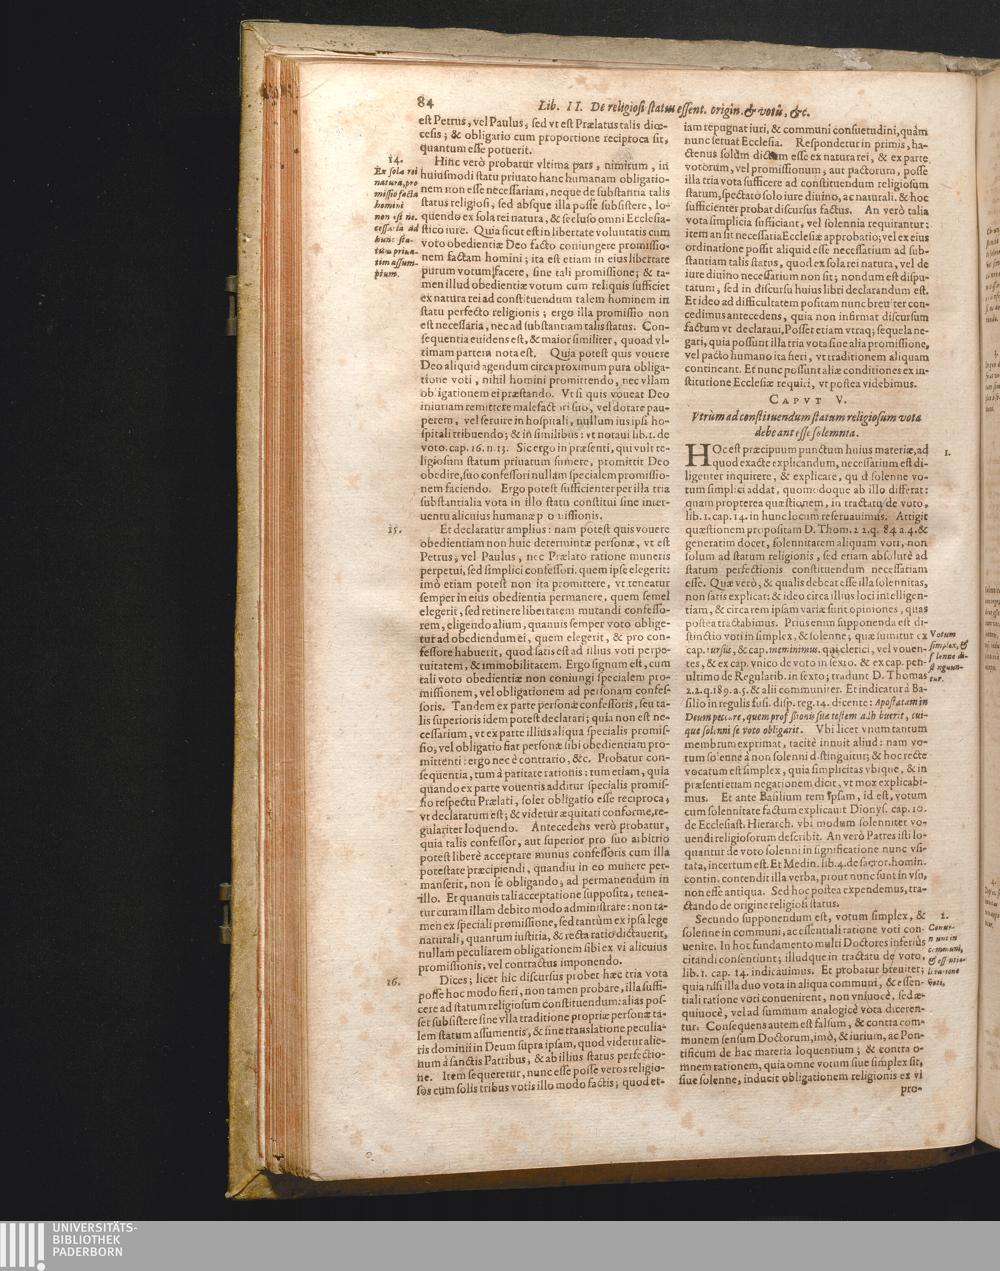 84
Lib. II. De religiosi status essent. origin. & votis, &c.
est Petrus, vel Paulus, sed vt est Prælatus talis diœ-
cesis; & obligatio cum proportione reciproca sit,
quantum esse potuerit.
14.
Ex sola rei
natura, pro
missio facta
homini
non est ne.
cessaria ad
hunc sta-
tum priua-
tim assum-
ptum.
Hinc verò probatur vltima pars, nimirum, in
huiusmodi statu priuato hanc humanam obligatio-
nem non esse necessariam, neque de substantia talis
status religiosi, sed absque illa posse subsistere, lo-
quendo ex sola rei natura, & secluso omni Ecclesia-
stico iure. Quia sicut est in libertate voluntatis cum
voto obedientiæ Deo facto coniungere promissio-
nem factam homini; ita est etiam in eius libertate
purum votum facere, sine tali promissione; & ta-
men illud obedientiæ votum cum reliquis sufficiet
ex natura rei ad constituendum talem hominem in
statu perfecto religionis; ergo illa promissio non
est necessaria, nec ad substantiam talis status. Con-
sequentia euidens est, & maior similiter, quoad vl-
timam partem nota est. Quia potest quis vouere
Deo aliquid agendum circa proximum pura obliga-
tione voti, nihil homini promittendo, nec vllam
obligationem ei præstando. Vt si quis voueat Deo
iniuriam remittere malefactori suo, vel dotare pau-
perem, vel seruire in hospitali, nullum ius ipsi ho-
spitali tribuendo; & in similibus: vt notaui lib. 1. de
voto. cap. 16. n. 13. Sic ergo in præsenti, qui vult re-
ligiosum statum priuatum sumere, promittit Deo
obedire, suo confessori nullam specialem promissio-
nem faciendo. Ergo potest sufficienter per illa tria
substantialia vota in illo statu constitui sine inter-
uentu alicuius humanæ promissionis.
15.
Et declaratur amplius: nam potest quis vouere
obedientiam non huic determinatæ personæ, vt est
Petrus, vel Paulus, nec Prælato ratione muneris
perpetui, sed simplici confessori, quem ipse elegerit:
imò etiam potest non ita promittere, vt teneatur
semper in eius obedientia permanere, quem semel
elegerit, sed retinere libertatem mutandi confesso-
rem, eligendo alium, quanuis semper voto oblige-
tur ad obediendum ei, quem elegerit, & pro con-
fessore habuerit, quod satis est ad illius voti perpe-
tuitatem, & immobilitatem. Ergo signum est, cum
tali voto obedientiæ non coniungi specialem pro-
missionem, vel obligationem ad personam confes-
soris. Tandem ex parte personæ confessoris, seu ta-
lis superioris idem potest declarari; quia non est ne-
cessarium, vt ex parte illius aliqua specialis promis-
sio, vel obligatio fiat personæ sibi obedientiam pro-
mittenti: ergo nec è contrario, &c. Probatur con-
sequentia, tum à paritate rationis: tum etiam, quia
quando ex parte vouentis additur specialis promis-
sio respectu Prælati, solet obligatio esse reciproca,
vt declaratum est; & videtur æquitati conforme, re-
gulariter loquendo. Antecedens verò probatur,
quia talis confessor, aut superior pro suo arbitrio
potest liberè acceptare munus confessoris cum illa
potestate præcipiendi, quandiu in eo munere per-
manserit, non se obligando, ad permanendum in
illo. Et quanuis tali acceptatione supposita, tenea-
tur curam illam debito modo administrare: non ta-
men ex speciali promissione, sed tantùm ex ipsa lege
naturali, quantum iustitia, & recta ratio dictauerit,
nullam peculiarem obligationem sibi ex vi alicuius
promissionis, vel contractus imponendo.
16.
Dices; licet hic discursus probet hæc tria vota
posse hoc modo fieri, non tamen probare, illa suffi-
cere ad statum religiosum constituendum: alias pos-
set subsistere sine vlla traditione propriæ personæ ta-
lem statum assumentis, & sine translatione peculia-
ris dominii in Deum supra ipsam, quod videtur alie-
num à sanctis Patribus, & ab illius status perfectio-
ne. Item sequeretur, nunc esse posse veros religio-
sos cum solis tribus votis illo modo factis; quod et-
iam repugnat iuri, & communi consuetudini, quàm
nunc seruat Ecclesia. Respondetur in primis, ha-
ctenus solùm dictum esse ex natura rei, & ex parte
votorum, vel promissionum, aut pactorum, posse
illa tria vota sufficere ad constituendum religiosum
statum, spectato solo iure diuino, ac naturali. & hoc
sufficienter probat discursus factus. An verò talia
vota simplicia sufficiant, vel solennia requirantur:
item an sit necessaria Ecclesiæ approbatio; vel ex eius
ordinatione possit aliquid esse necessarium ad sub-
stantiam talis status, quod ex sola rei natura, vel de
iure diuino necessarium non sit; nondum est dispu-
tatum; sed in discursu huius libri declarandum est.
Et ideo ad difficultatem positam nunc breuiter con-
cedimus antecedens, quia non infirmat discursum
factum vt declaraui, Posset etiam vtraq; sequela ne-
gari, quia possunt illa tria vota sine alia promissione,
vel pacto humano ita fieri, vt traditionem aliquam
contineant. Et nunc possunt aliæ conditiones ex in-
stitutione Ecclesiæ requiri, vt postea videbimus.
CAPVT V.
Vtrùm ad constituendum statum religiosum vota
debeant esse solemnia.
1.
HOc est præcipuum punctum huius materiæ, ad
quod exacte explicandum, necessarium est di-
ligenter inquirere, & explicare, quid solenne vo-
tum simplici addat, quomodoque ab illo differat:
quam propterea quæstionem, in tractatu de voto,
lib. 1. cap. 14. in hunc locum reseruauimus. Attigit
quæstionem propositam D. Thom. 2 2. q. 84 a. 4. &
generatim docet, solennitatem aliquam voti, non
solum ad statum religionis, sed etiam absolutè ad
statum perfectionis constituendum necessariam
esse. Quæ verò, & qualis debeat esse illa solennitas,
non satis explicat: & ideo circa illius loci intelligen-
tiam, & circa rem ipsam variæ sunt opiniones, quas
postea tractabimus. Prius enim supponenda est di-
stinctio voti in simplex, & solenne; quæ sumitur ex
Votum
simplex, &
solenne di-
stinguun-
tur.
cap. rursus, & cap. meminimus. qui clerici, vel vouen-
tes, & ex cap. vnico de voto in sexto. & ex cap. pen-
ultimo de Regularib. in sexto; tradunt D. Thomas
2.2. q. 189. a. 5. & alii communiter. Et indicatur à Ba-
silio in regulis fusi. disp. reg. 14. dicente: Apostatam in
Deum peccare, quem professionis suæ testem adhibuerit, cui-
que solenni se voto obligarit. Vbi licet vnum tantum
membrum exprimat, tacitè innuit aliud: nam vo-
tum solenne à non solenni distinguitur; & hoc recte
vocatum est simplex, quia simplicitas vbique, & in
præsenti etiam negationem dicit, vt mox explicabi-
mus. Et ante Basilium rem ipsam, id est, votum
cum solennitate factum explicauit Dionys. cap. 10.
de Ecclesiast. Hierarch. vbi modum solenniter vo-
uendi religiosorum describit. An verò Patres isti lo-
quantur de voto solenni in significatione nunc vsi-
tata, incertum est. Et Medin. lib. 4. de sacror. homin.
contin. contendit illa verba, prout nunc sunt in vsu,
non esse antiqua. Sed hoc postea expendemus, tra-
ctando de origine religiosi status.
2.
Conue-
niunt in
communi,
& essentia-
li ratione
voti,
Secundo supponendum est, votum simplex, &
solenne in communi, ac essentiali ratione voti con-
uenire. In hoc fundamento multi Doctores inferiùs
citandi consentiunt; illudque in tractatu de voto,
lib. 1. cap. 14. indicauimus. Et probatur breuiter;
quia nisi illa duo vota in aliqua communi, & essen-
tiali ratione voti conuenirent, non vniuocè, sed æ-
quiuocè, vel ad summum analogicè vota diceren-
tur. Consequens autem est falsum, & contra com-
munem sensum Doctorum, imò, & iurium, ac Pon-
tificum de hac materia loquentium; & contra o-
mnem rationem, quia omne votum siue simplex sit,
siue solenne, inducit obligationem religionis ex vi
pro-
UNIVERSITÄTS-
BIBLIOTHEK
PADERBORN